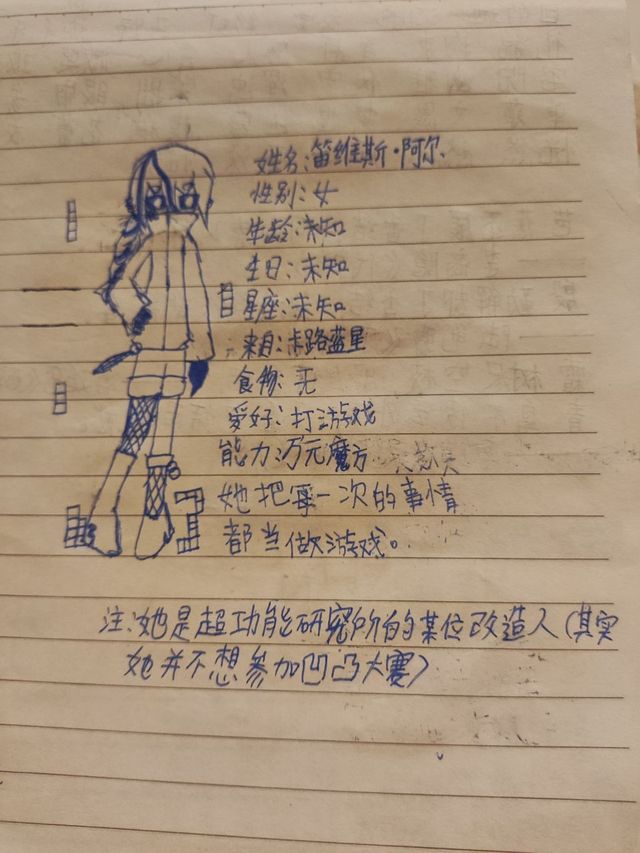 姓名:笛维斯·阿尔
性别:女
年龄:未知
生日:未知
星座:未知
来自:卡路蓝星
食物:无
爱好:打游戏
能力:万元魔方
她把每一次的事情
都当做游戏。
注:她是超功能研究所的某位改造人(其实
她并不想参加凹凸大赛)